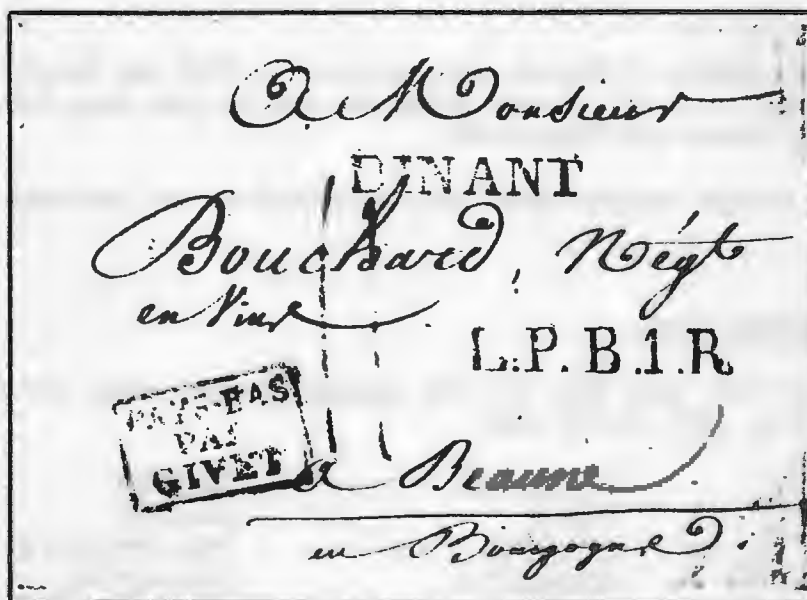 A Monsieur
DINANT
Bouchard, Négt
en Vins
L.P.B.1.R
PAYS-BAS
PAR
GIVET
a Beaune
en Bourgogne